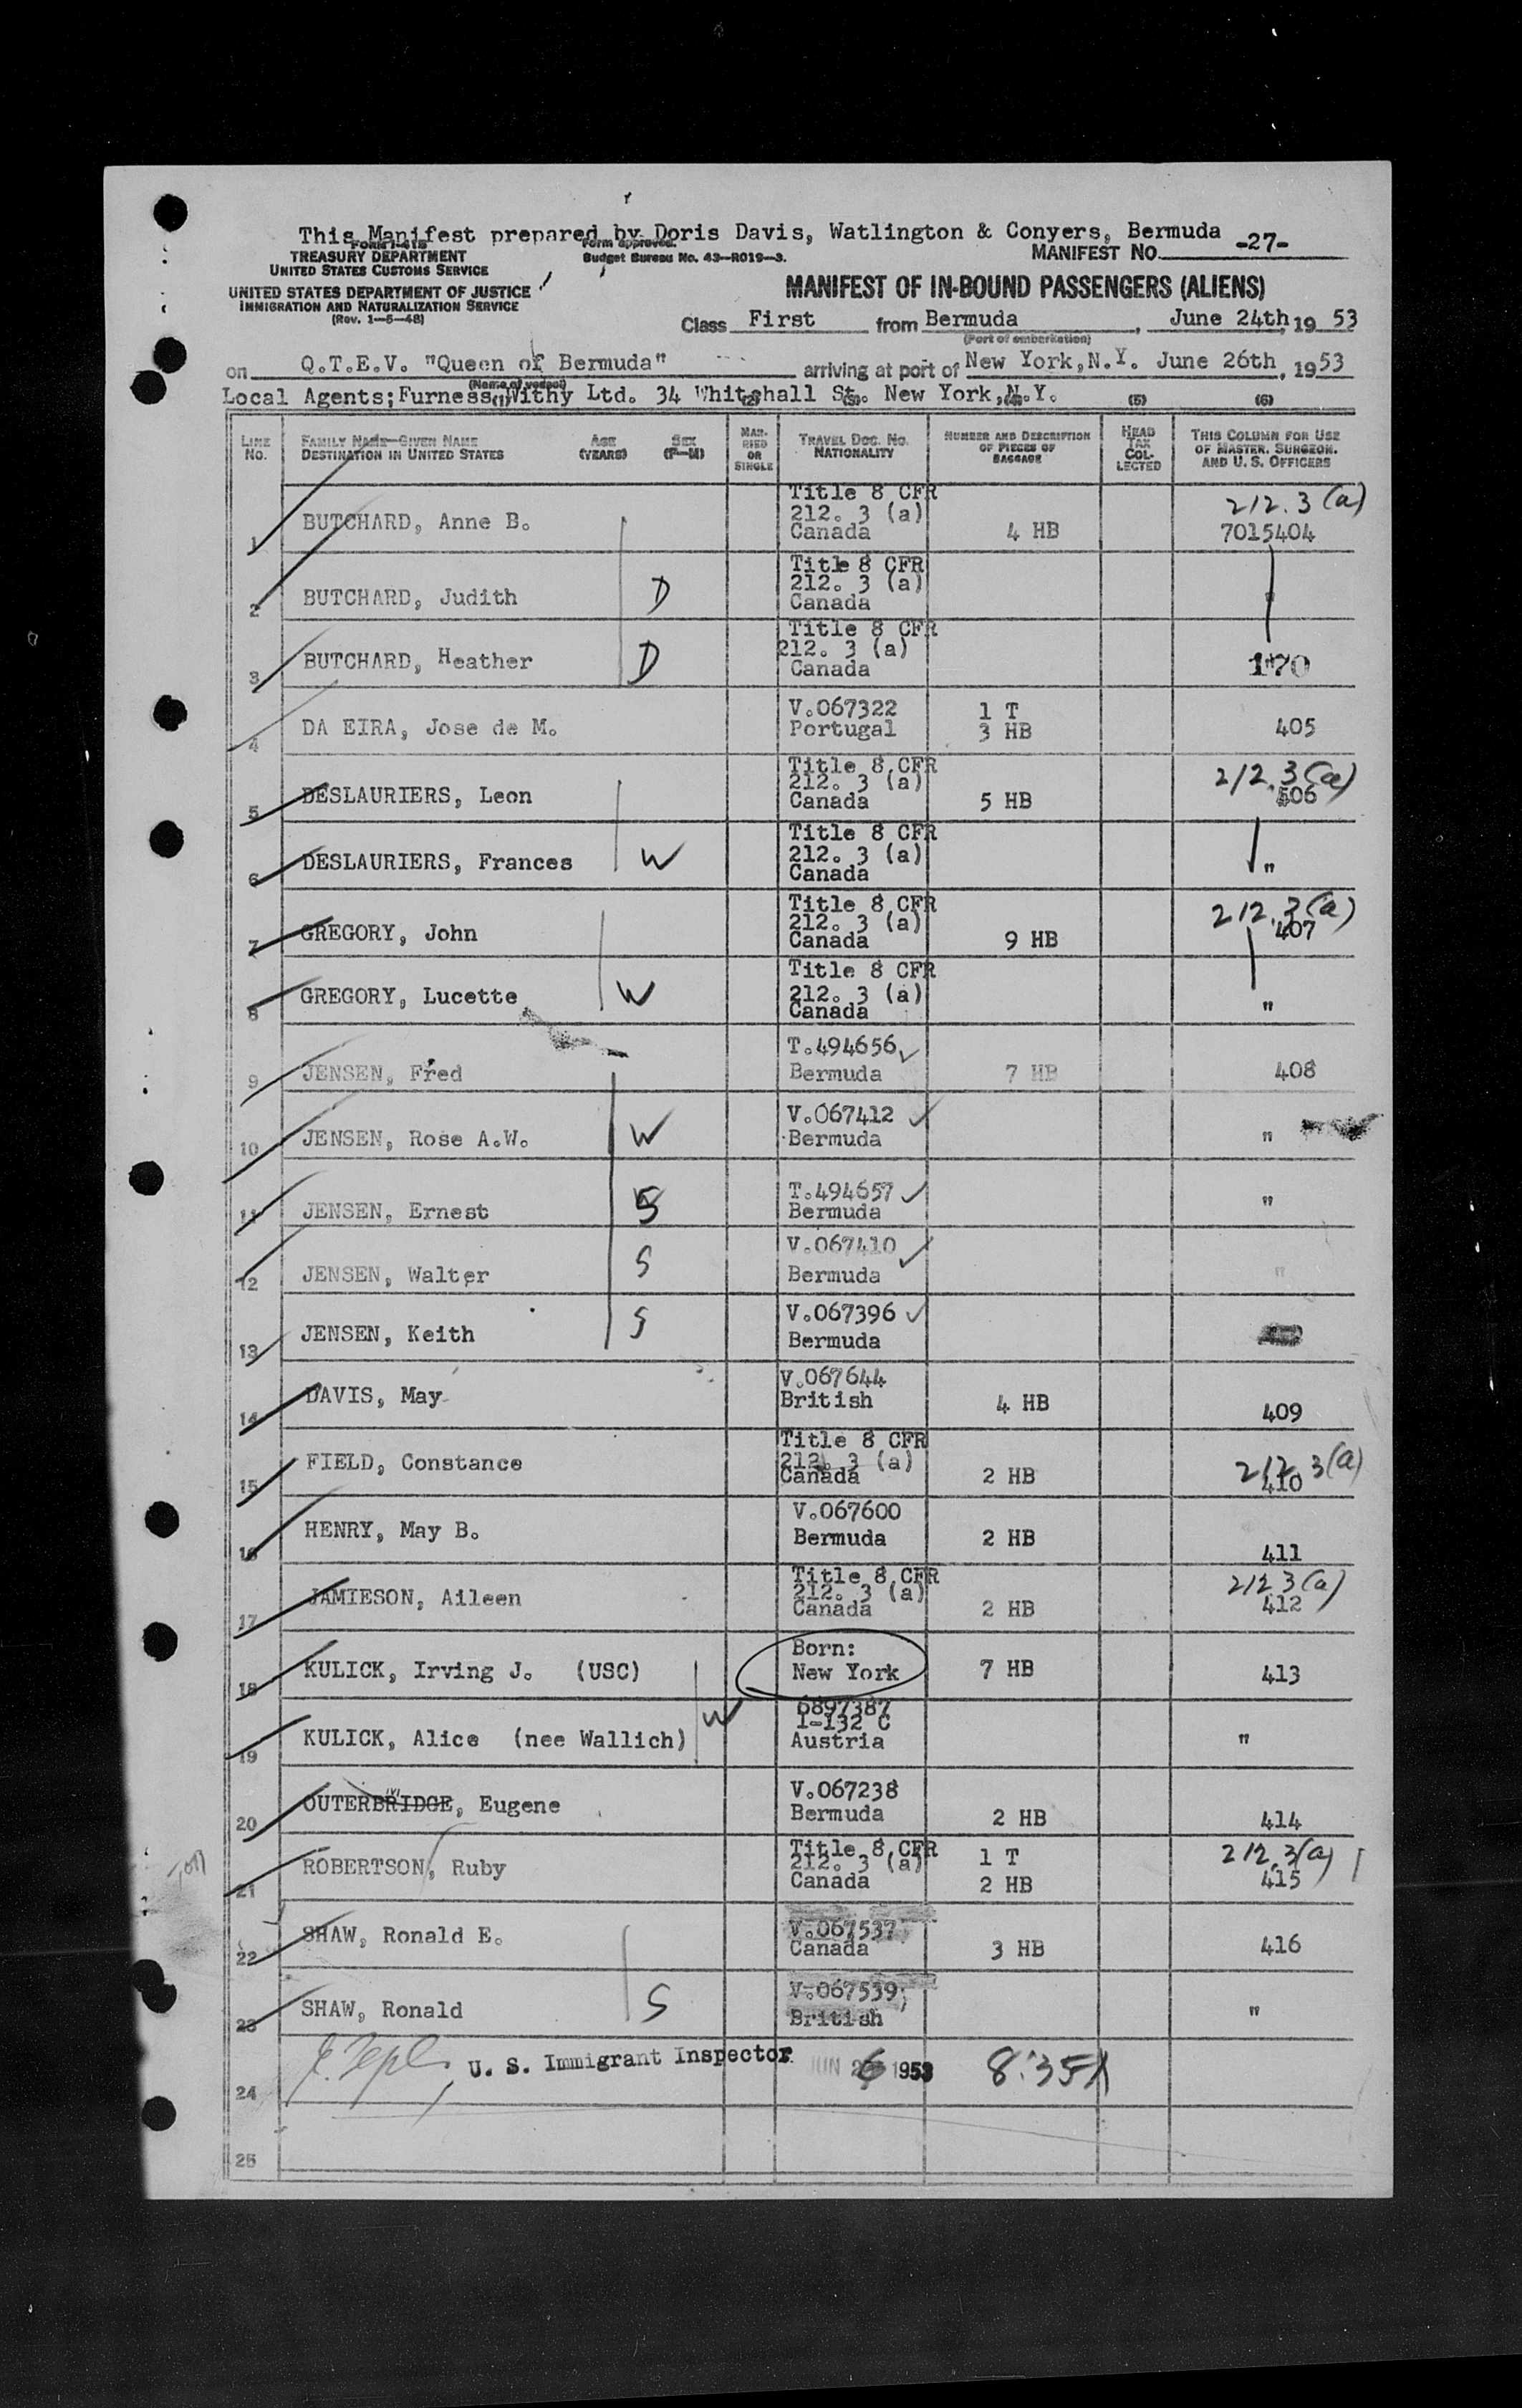 This Manifest prepared by Doris Davis, Watlington & Conyers, Bermuda
FORM I-415
TREASURY DEPARTMENT
UNITED STATES CUSTOMS SERVICE
Form approved.
Budget Bureau No. 43—R019—3.
MANIFEST NO. -27-
UNITED STATES DEPARTMENT OF JUSTICE
IMMIGRATION AND NATURALIZATION SERVICE
(Rev. 1—5—48)
MANIFEST OF IN-BOUND PASSENGERS (ALIENS)
Class First from Bermuda, June 24th, 19 53
(Port of embarkation)
on Q.T.E.V. "Queen of Bermuda" arriving at port of New York, N.Y. June 26th, 19 53
(Name of vessel)
Local Agents; Furness Withy Ltd. 34 Whitehall St. New York, N.Y.
(1) (2) (3) (4) (5) (6)
LINE NO. FAMILY NAME—GIVEN NAME DESTINATION IN UNITED STATES AGE (YEARS) SEX (F—M) MARRIED OR SINGLE TRAVEL DOC. NO. NATIONALITY NUMBER AND DESCRIPTION OF PIECES OF BAGGAGE HEAD TAX COLLECTED THIS COLUMN FOR USE OF MASTER, SURGEON, AND U. S. OFFICERS
1 BUTCHARD, Anne B. Title 8 CFR 212. 3 (a) Canada 4 HB 212.3(a) 7015404
2 BUTCHARD, Judith D Title 8 CFR 212. 3 (a) Canada "
3 BUTCHARD, Heather D Title 8 CFR 212. 3 (a) Canada 170
4 DA EIRA, Jose de M. V.067322 Portugal 1 T 3 HB 405
5 DESLAURIERS, Leon Title 8 CFR 212. 3 (a) Canada 5 HB 212.3(a) 406
6 DESLAURIERS, Frances W Title 8 CFR 212. 3 (a) Canada "
7 GREGORY, John Title 8 CFR 212. 3 (a) Canada 9 HB 212.3(a) 407
8 GREGORY, Lucette W Title 8 CFR 212. 3 (a) Canada "
9 JENSEN, Fred T.494656 Bermuda 7 HB 408
10 JENSEN, Rose A.W. W V.067412 Bermuda "
11 JENSEN, Ernest S T.494657 Bermuda "
12 JENSEN, Walter S V.067410 Bermuda "
13 JENSEN, Keith S V.067396 Bermuda
14 DAVIS, May V.067644 British 4 HB 409
15 FIELD, Constance Title 8 CFR 212. 3 (a) Canada 2 HB 212 3(a) 410
16 HENRY, May B. V.067600 Bermuda 2 HB 411
17 JAMIESON, Aileen Title 8 CFR 212. 3 (a) Canada 2 HB 212 3(a) 412
18 KULICK, Irving J. (USC) Born: New York 7 HB 413
19 KULICK, Alice (nee Wallich) W 6897387 I-132 C Austria "
20 OUTERBRIDGE, Eugene V.067238 Bermuda 2 HB 414
21 ROBERTSON, Ruby Title 8 CFR 212. 3 (a) Canada 1 T 2 HB 212.3(a) 415
22 SHAW, Ronald E. V.067537 Canada 3 HB 416
23 SHAW, Ronald S V.067539 British "
24 U. S. Immigrant Inspector JUN 26 1953 8:35A
25